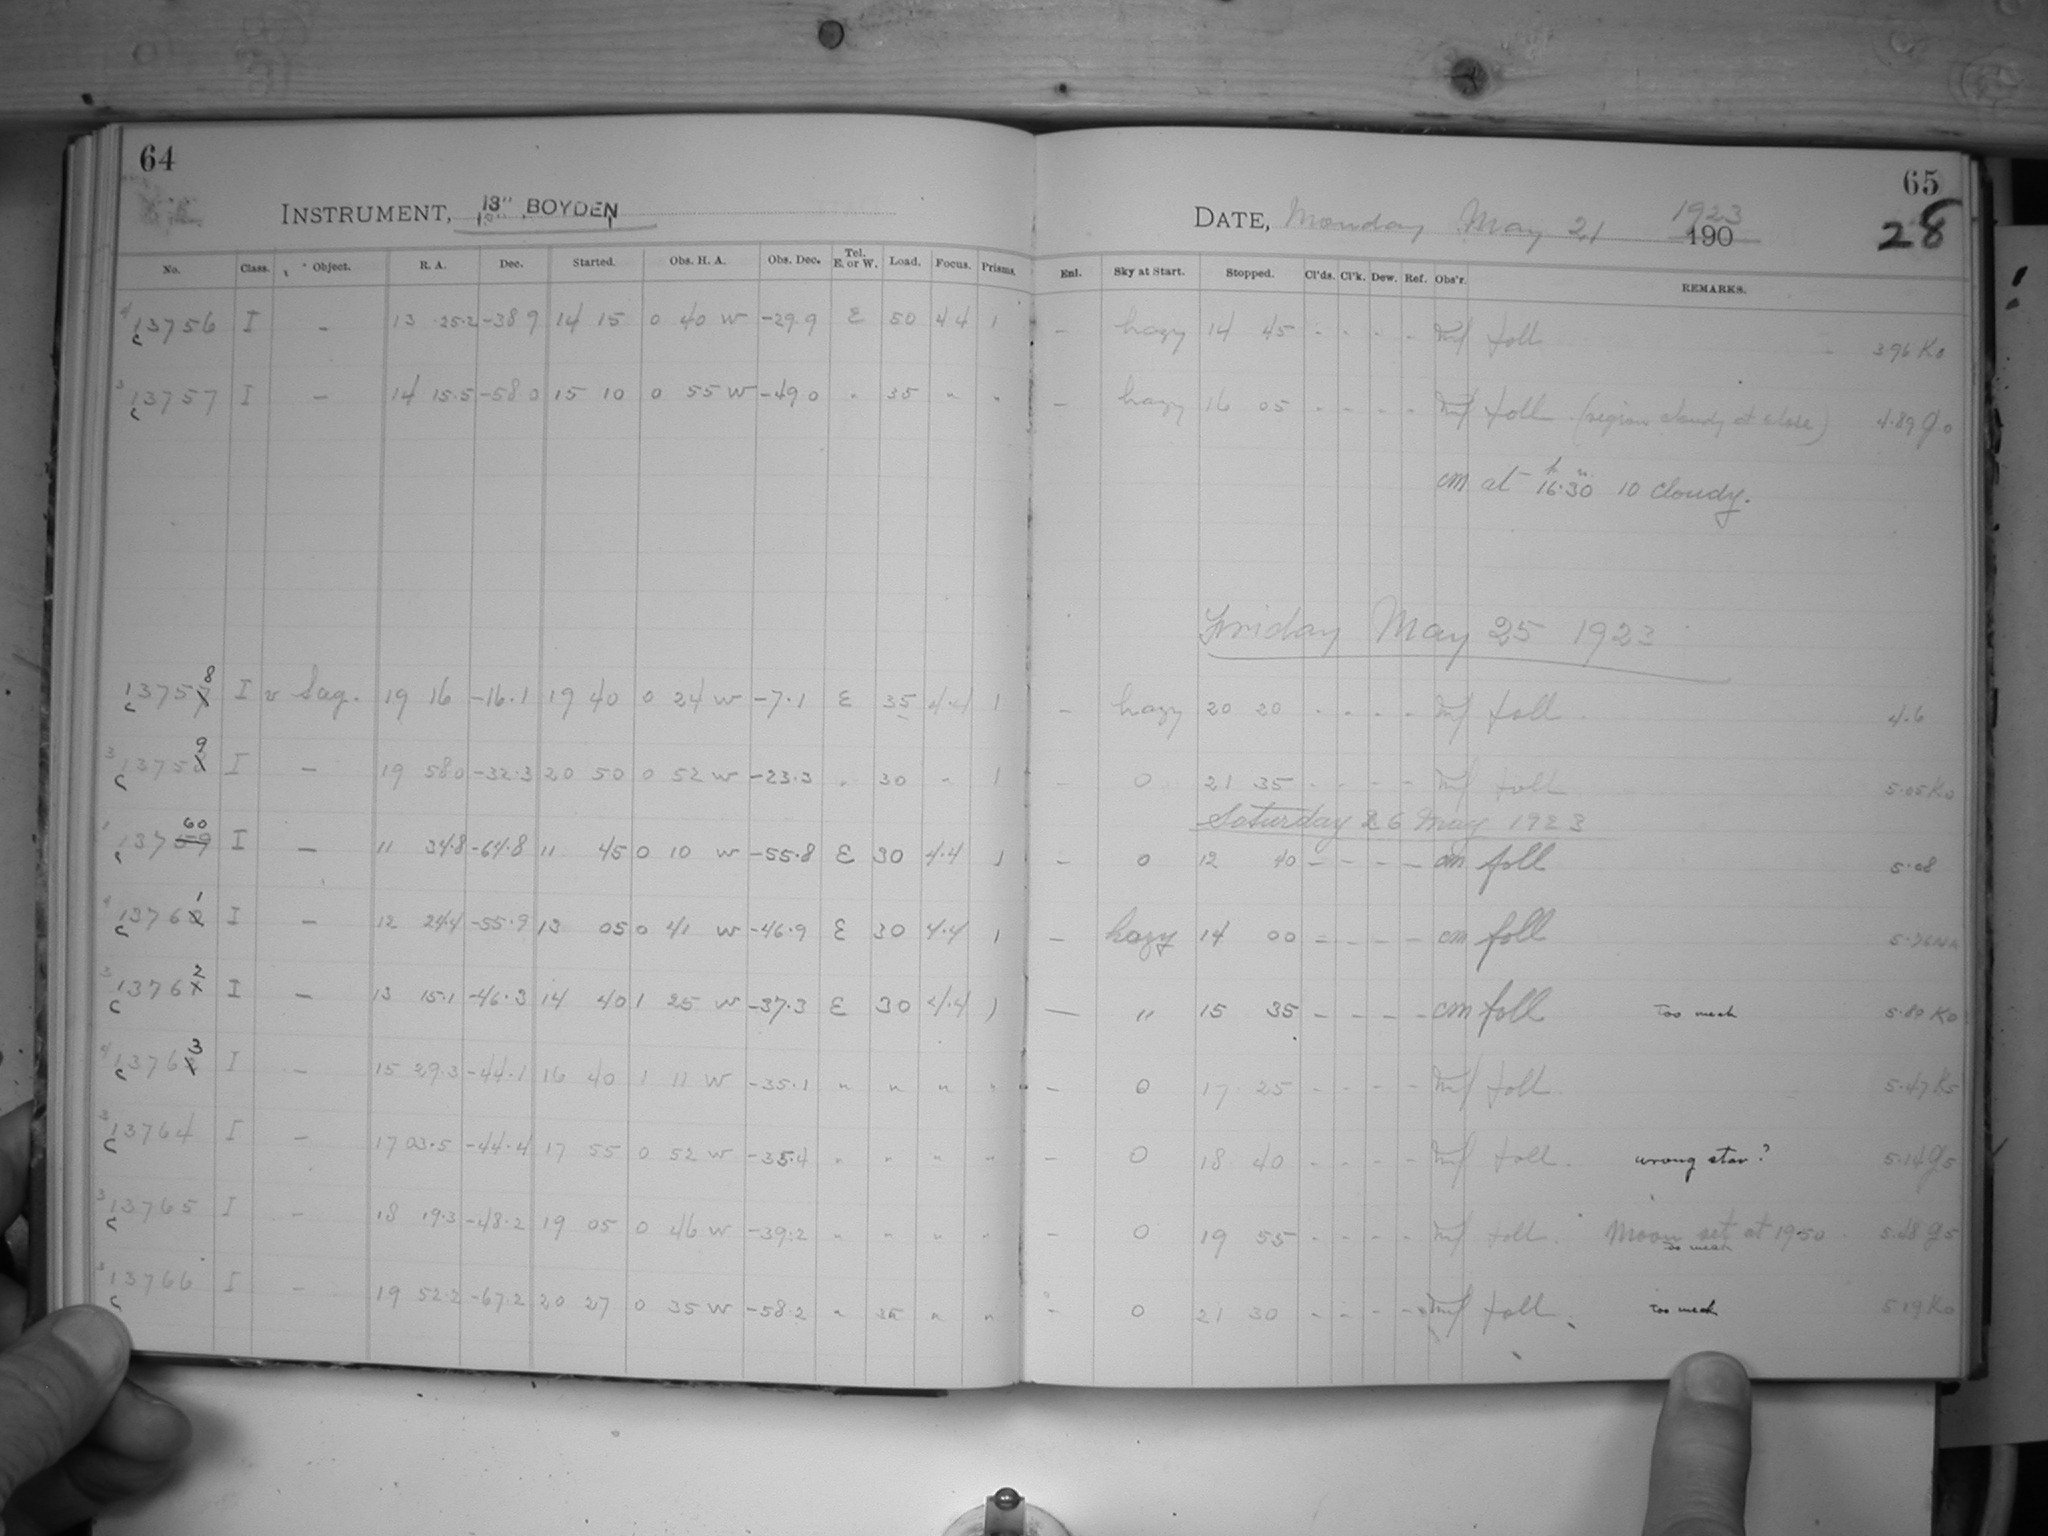 64
65
28
INSTRUMENT, 13" BOYDEN
DATE, Monday May 21 1923 190
No. Class. Object. R. A. Dec. Started. Obs. H. A. Obs. Dec. Tel. E. or W. Load. Focus. Prisms. Enl. Sky at Start. Stopped. Cl'ds. Cl'k. Dew. Ref. Obs'r. REMARKS.
4 c 13756 I - 13 25.2 -38 9 14 15 0 40 W -29.9 E 50 44 1 - hazy 14 45 - - - - foll 3.96 K0
3 c 13757 I - 14 15.5 -58 0 15 10 0 55 W -49 0 " 35 " " - hazy 16 05 - - - - foll (region cloudy at close) 4.89 g0
cm at 16h.30m 10 cloudy.
Friday May 25 1923
c 13757 8 I v Sag. 19 16 -16.1 19 40 0 24 W -7.1 E 35 4.4 1 - hazy 20 20 - - - - foll. 4.6
3 c 13758 9 I - 19 58 0 -32.3 20 50 0 52 W -23.3 " 30 " 1 - 0 21 35 - - - - foll 5.05 K0
Saturday 26 May 1923
c 13759 60 I - 11 34.8 -64.8 11 45 0 10 W -55.8 E 30 4.4 1 - 0 12 40 - - - - cm foll 5.08
4 c 13760 1 I - 12 24.4 -55.9 13 05 0 41 W -46.9 E 30 4.4 1 - hazy 14 00 - - - - cm foll
3 c 13761 2 I - 13 15.1 -46.3 14 40 1 25 W -37.3 E 30 4.4 1 - " 15 35 - - - - cm foll Too weak 5.80 K0
4 c 13762 3 I - 15 29.3 -44.1 16 40 1 11 W -35.1 " " " " - 0 17 25 - - - - foll. 5.47 K5
3 c 13764 I - 17 03.5 -44.4 17 55 0 52 W -35.4 " " " " - 0 18 40 - - - - foll. wrong star? 5.14 g5
3 c 13765 I - 18 19.3 -48.2 19 05 0 46 W -39.2 " " " " - 0 19 55 - - - - foll. Moon set at 19.50 5.48 g5
Too weak
3 c 13766 I - 19 52.2 -67.2 20 27 0 35 W -58.2 " 25 " " - 0 21 30 - - - - foll. Too weak 5.19 K0